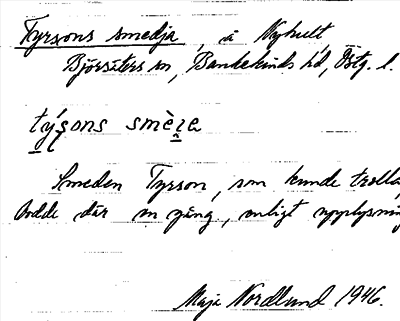 Tyrsons smedja, å Nyhult,
Björsäters sn, Bankekinds hd, Östg. l.
tý̱ʂons smè̱ɪa
Smeden Tyrson, som kunde trolla,
bodde där en gång, enligt upplysning
Maja Nordlund 1946.